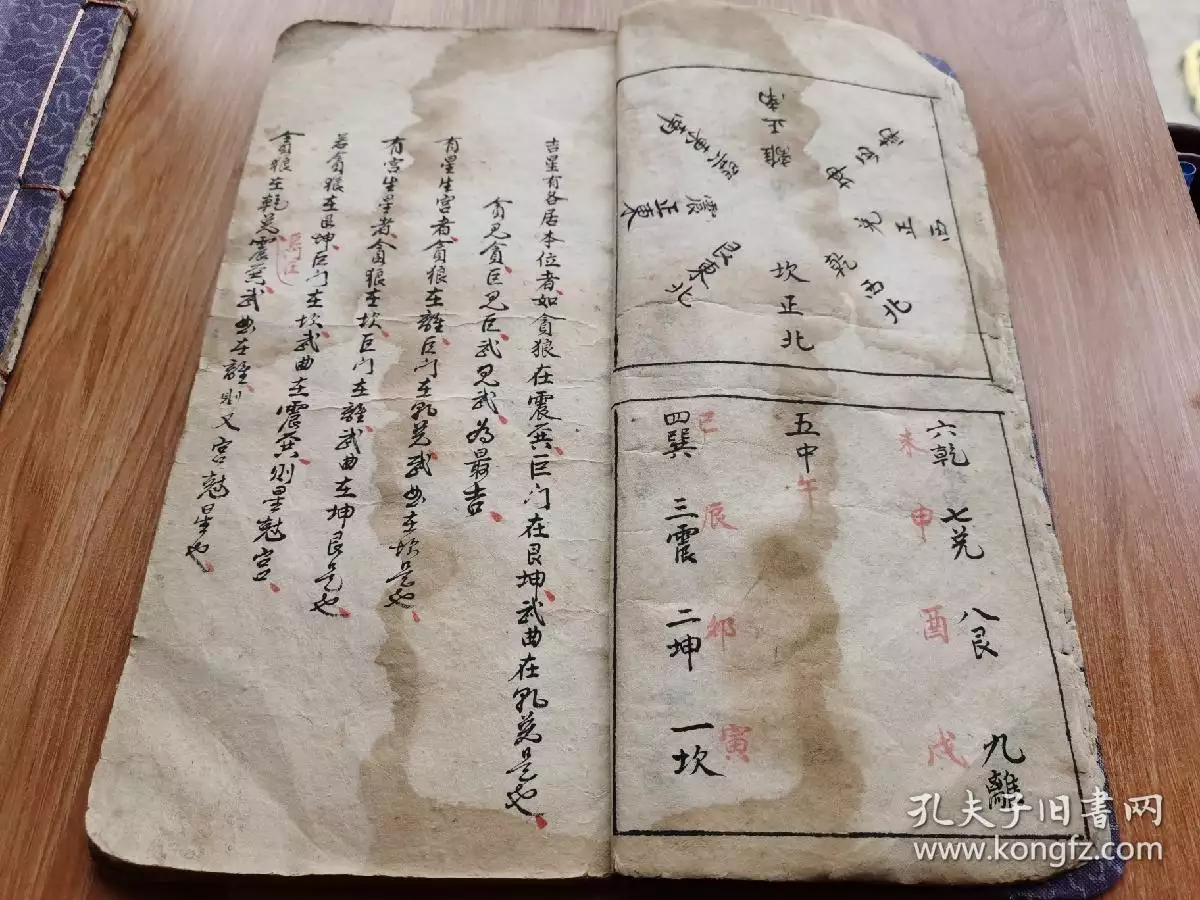 離正南
坤西南
兌正西
乾西北
坎正北
艮東北
震正東
巽東南
六乾
未
七兌
申
八艮
酉
九離
戌
五中
午
四巽
巳
三震
辰
二坤
卯
一坎
寅
吉星有各居本位者、如貪狼在震巽、巨门在艮坤、武曲在乹兌是也、
貪見貪、巨見巨、武見武、為最吉、
有星生宮者、貪狼在離、巨门在乹兌、武曲在坎是也、
有宮生星者、貪狼在坎、巨门在離、武曲在坤艮是也、
若貪狼在艮坤、巨门在坎、武曲在震巽、則星尅宮、
貪狼在乾兌、震巽、武曲在離、則又宮尅星也、
巨门在
孔夫子旧书网
www.kongfz.com